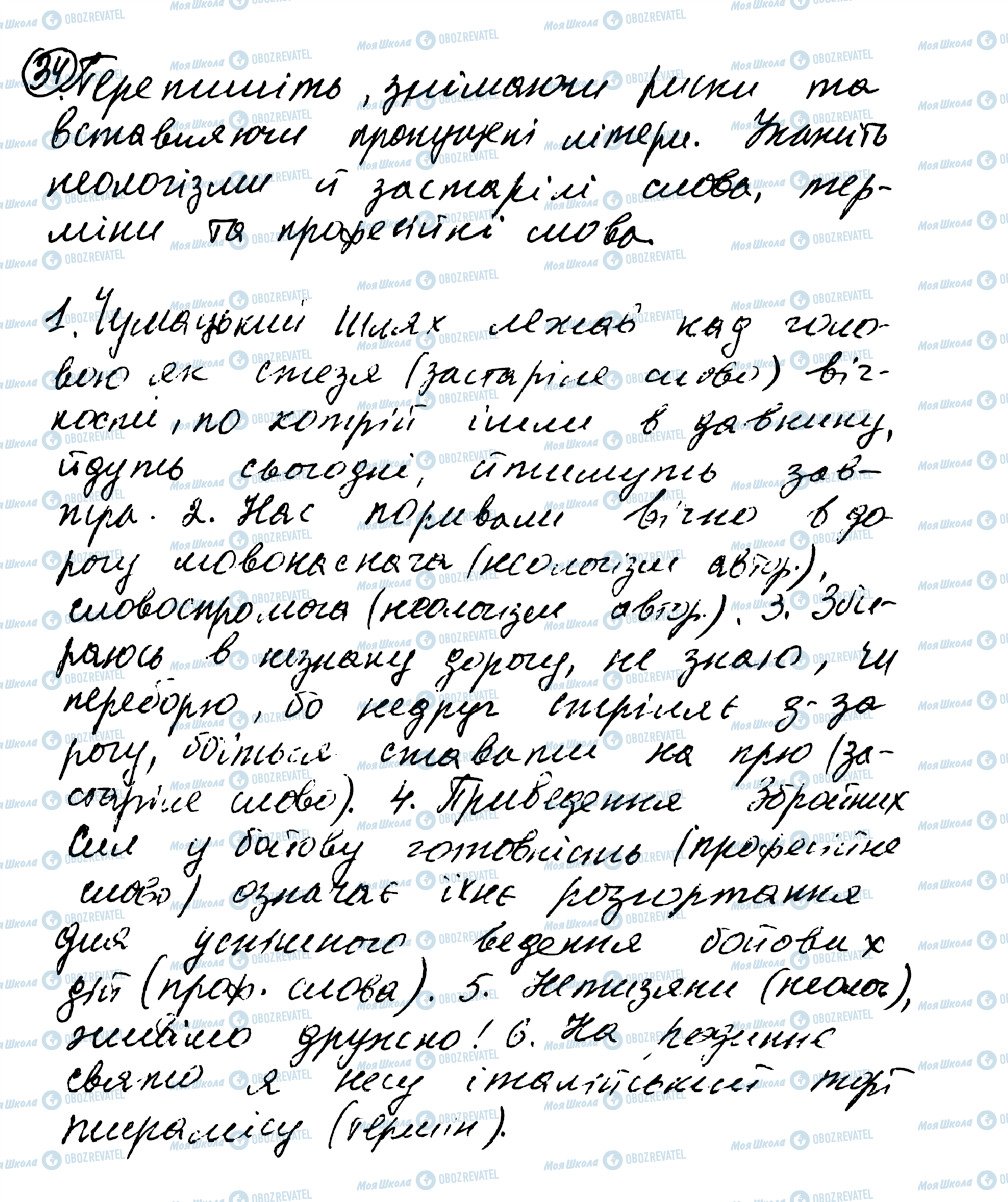 34. Перепишіть, знімаючи риски та
вставляючи пропущені літери. Укажіть
неологізми й застарілі слова, тер-
міни та професійні слова.
1. Чумацький Шлях лежав над голо-
вою як стезя (застаріле слово) віч-
ності, по котрій ішли в давнину,
йдуть сьогодні, йтимуть зав-
тра. 2. Нас поривали вічно в до
рогу мовонаснага (неологізм автор.),
словоспромога (неологізм автор.). 3. Зби-
раюсь в незнану дорогу, не знаю, чи
переборю, бо недруг стріляє з-за
рогу, боїться ставати на прю (за-
старіле слово). 4. Приведення Збройних
Сил у бойову готовність (професійне
слово) означає їхнє розгортання
для успішного ведення бойових
дій (проф. слова). 5. Нетизяни (неолог),
живімо дружно! 6. На родинне
свято я несу італійський торт
тирамісу (термін).